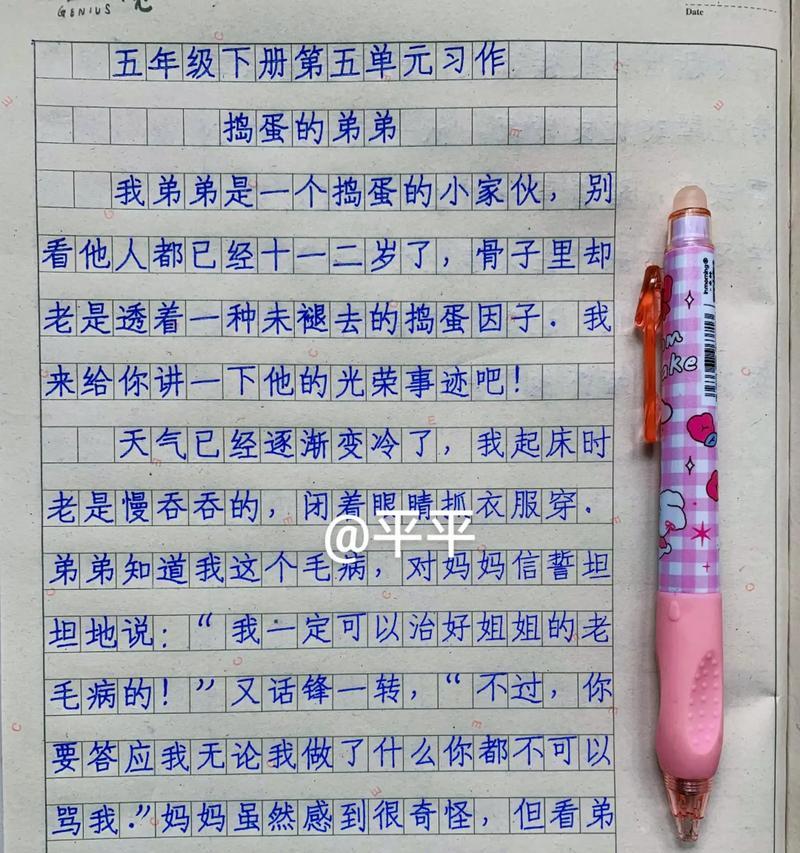 GENIUS
Date
五年级下册第五单元习作
捣蛋的弟弟
我弟弟是一个捣蛋的小家伙，别
看他人都已经十一二岁了，骨子里却
老是透着一种未褪去的捣蛋因子．我
来给你讲一下他的光荣事迹吧！
天气已经逐渐变冷了，我起床时
老是慢吞吞的，闭着眼睛抓衣服穿．
@平平
弟弟知道我这个毛病，对妈妈信誓坦
坦地说：“我一定可以治好姐姐的老
毛病的！”又话锋一转，“不过，你
要答应我无论我做了什么你都不可以
骂我．”妈妈虽然感到很奇怪，但看弟